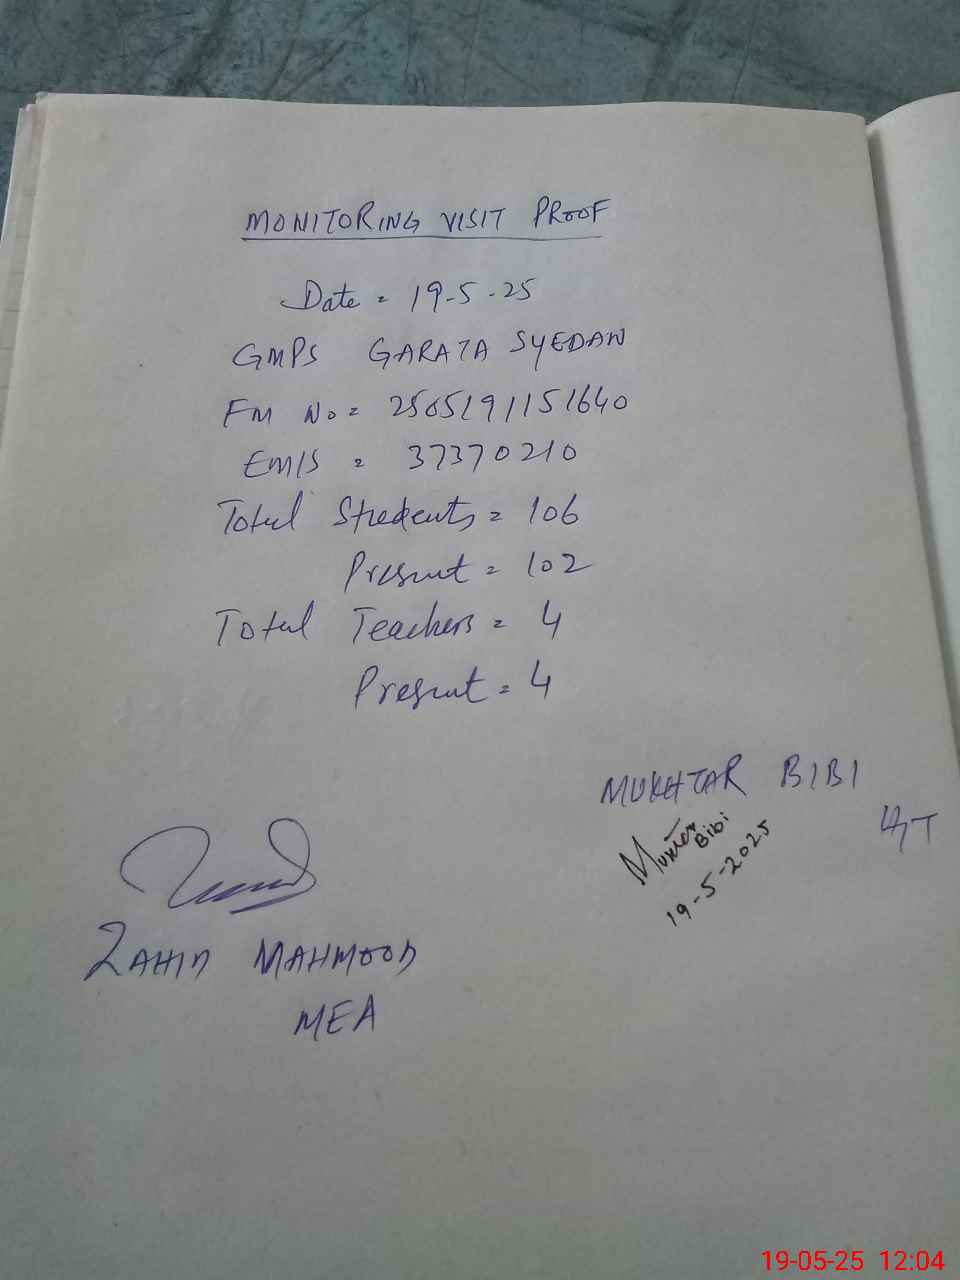 MONITORING VISIT PROOF
Date = 19-5-25
GMPS GARATA SYEDAN
FM No = 2505191151640
EMIS = 37370210
Total Students = 106
Present = 102
Total Teachers = 4
Present = 4
MUKHTAR BIBI
Bibi
19-5-2025
ZAHID MAHMOOD
MEA
19-05-25 12:04